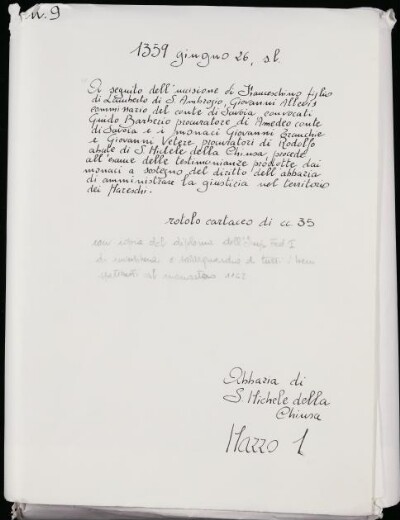 n. 9
1359 giugno 26, sl.
A seguito dell'uccisione di Franceschino figlio
di Lamberto di S. Ambrogio, Giovanni Allevis
commissario del conte di Savoia convocati
Guido Barberio procuratore di Amedeo conte
di Savoia e i monaci Giovanni Branchie
e Giovanni Vetere procuratori di Rodolfo
abate di S. Michele della Chiusa procede
all'esame delle testimonianze prodotte dai
monaci a sostegno del diritto dell'abbazia
di amministrare la giustizia nel territorio
dei Mareschi.
rotolo cartaceo di cc 35
con copia del diploma dell'Imp. Fed. I
di e salvaguardia di tutti i beni
Abbazia di
S. Michele della
Chiusa
Mazzo 1